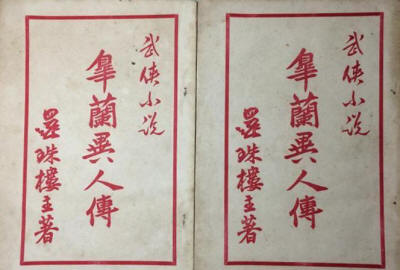 武俠小說
皋蘭異人傳
還珠樓主著
武俠小說
皋蘭異人傳
還珠樓主著